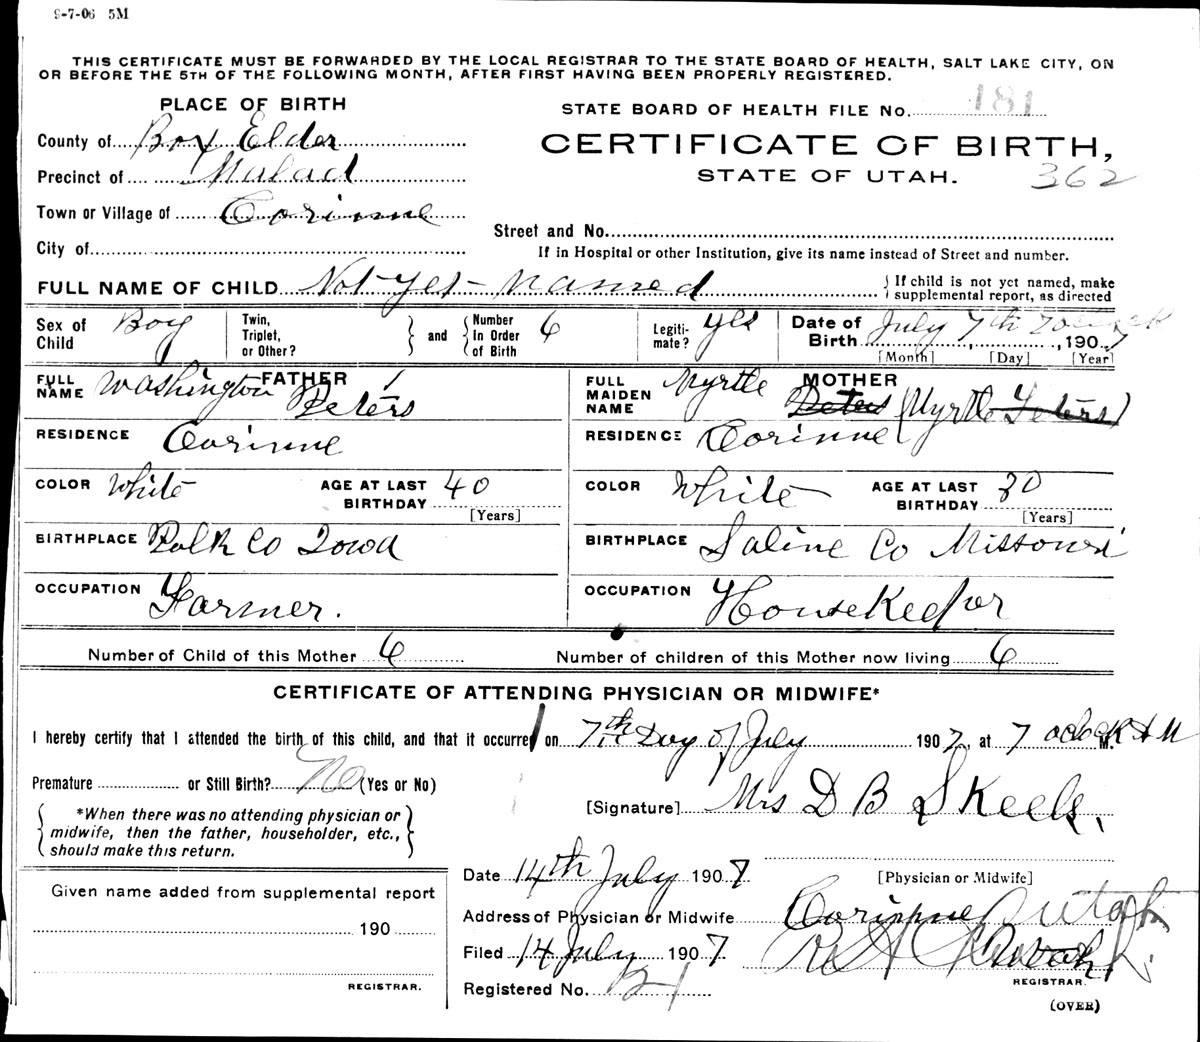 9-7-06 5M
THIS CERTIFICATE MUST BE FORWARDED BY THE LOCAL REGISTRAR TO THE STATE BOARD OF HEALTH, SALT LAKE CITY, ON
OR BEFORE THE 5TH OF THE FOLLOWING MONTH, AFTER FIRST HAVING BEEN PROPERLY REGISTERED.
PLACE OF BIRTH
STATE BOARD OF HEALTH FILE No. 181
County of Box Elder
CERTIFICATE OF BIRTH,
Precinct of Malad
STATE OF UTAH. 362
Town or Village of Corinne
Street and No.
City of
If in Hospital or other Institution, give its name instead of Street and number.
FULL NAME OF CHILD Not-yet-Named
If child is not yet named, make
supplemental report, as directed
Sex of Child Boy
Twin, Triplet, or Other?
and
Number In Order of Birth 6
Legiti-mate? yes
Date of Birth July 7th 1907
[Month] [Day] [Year]
FATHER
FULL NAME Washington Peters
MOTHER
FULL MAIDEN NAME Myrtle Peters (Myrtle Peters)
RESIDENCE Corinne
RESIDENCE Corinne
COLOR White
AGE AT LAST BIRTHDAY 40
[Years]
COLOR White
AGE AT LAST BIRTHDAY 30
[Years]
BIRTHPLACE Polk Co Iowa
BIRTHPLACE Saline Co Missouri
OCCUPATION Farmer.
OCCUPATION HouseKeeper
Number of Child of this Mother 6
Number of children of this Mother now living 6
CERTIFICATE OF ATTENDING PHYSICIAN OR MIDWIFE*
I hereby certify that I attended the birth of this child, and that it occurred on 7th Day of July 1907, at 7 oclock A M
Premature or Still Birth? No (Yes or No)
[Signature] Mrs D B Skeels.
*When there was no attending physician or
midwife, then the father, householder, etc.,
should make this return.
Date 14th July 1907
[Physician or Midwife]
Given name added from supplemental report
Address of Physician or Midwife Corinne Utah
190
Filed 14 July 1907
REGISTRAR.
REGISTRAR.
Registered No. 21
(OVER)